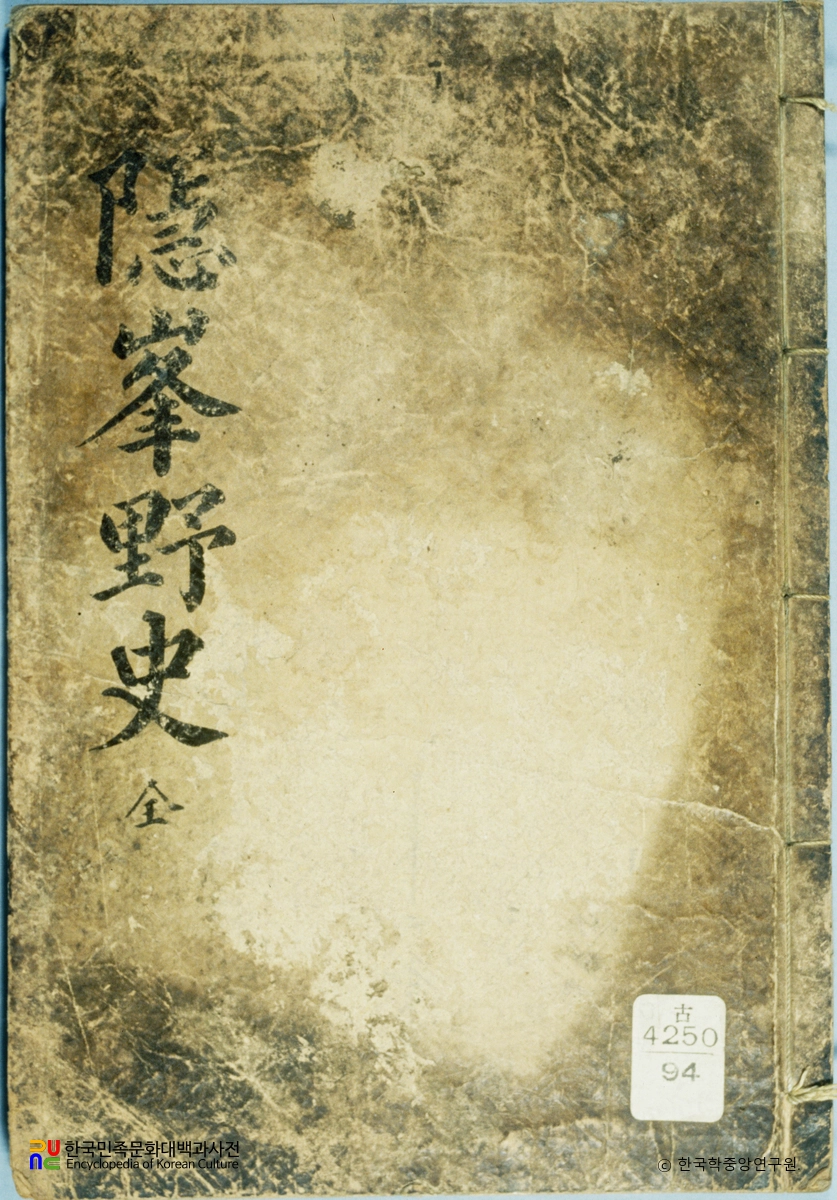 隱峯野史
全
古
4250
94
한국민족문화대백과사전
Encyclopedia of Korean Culture
© 한국학중앙연구원.